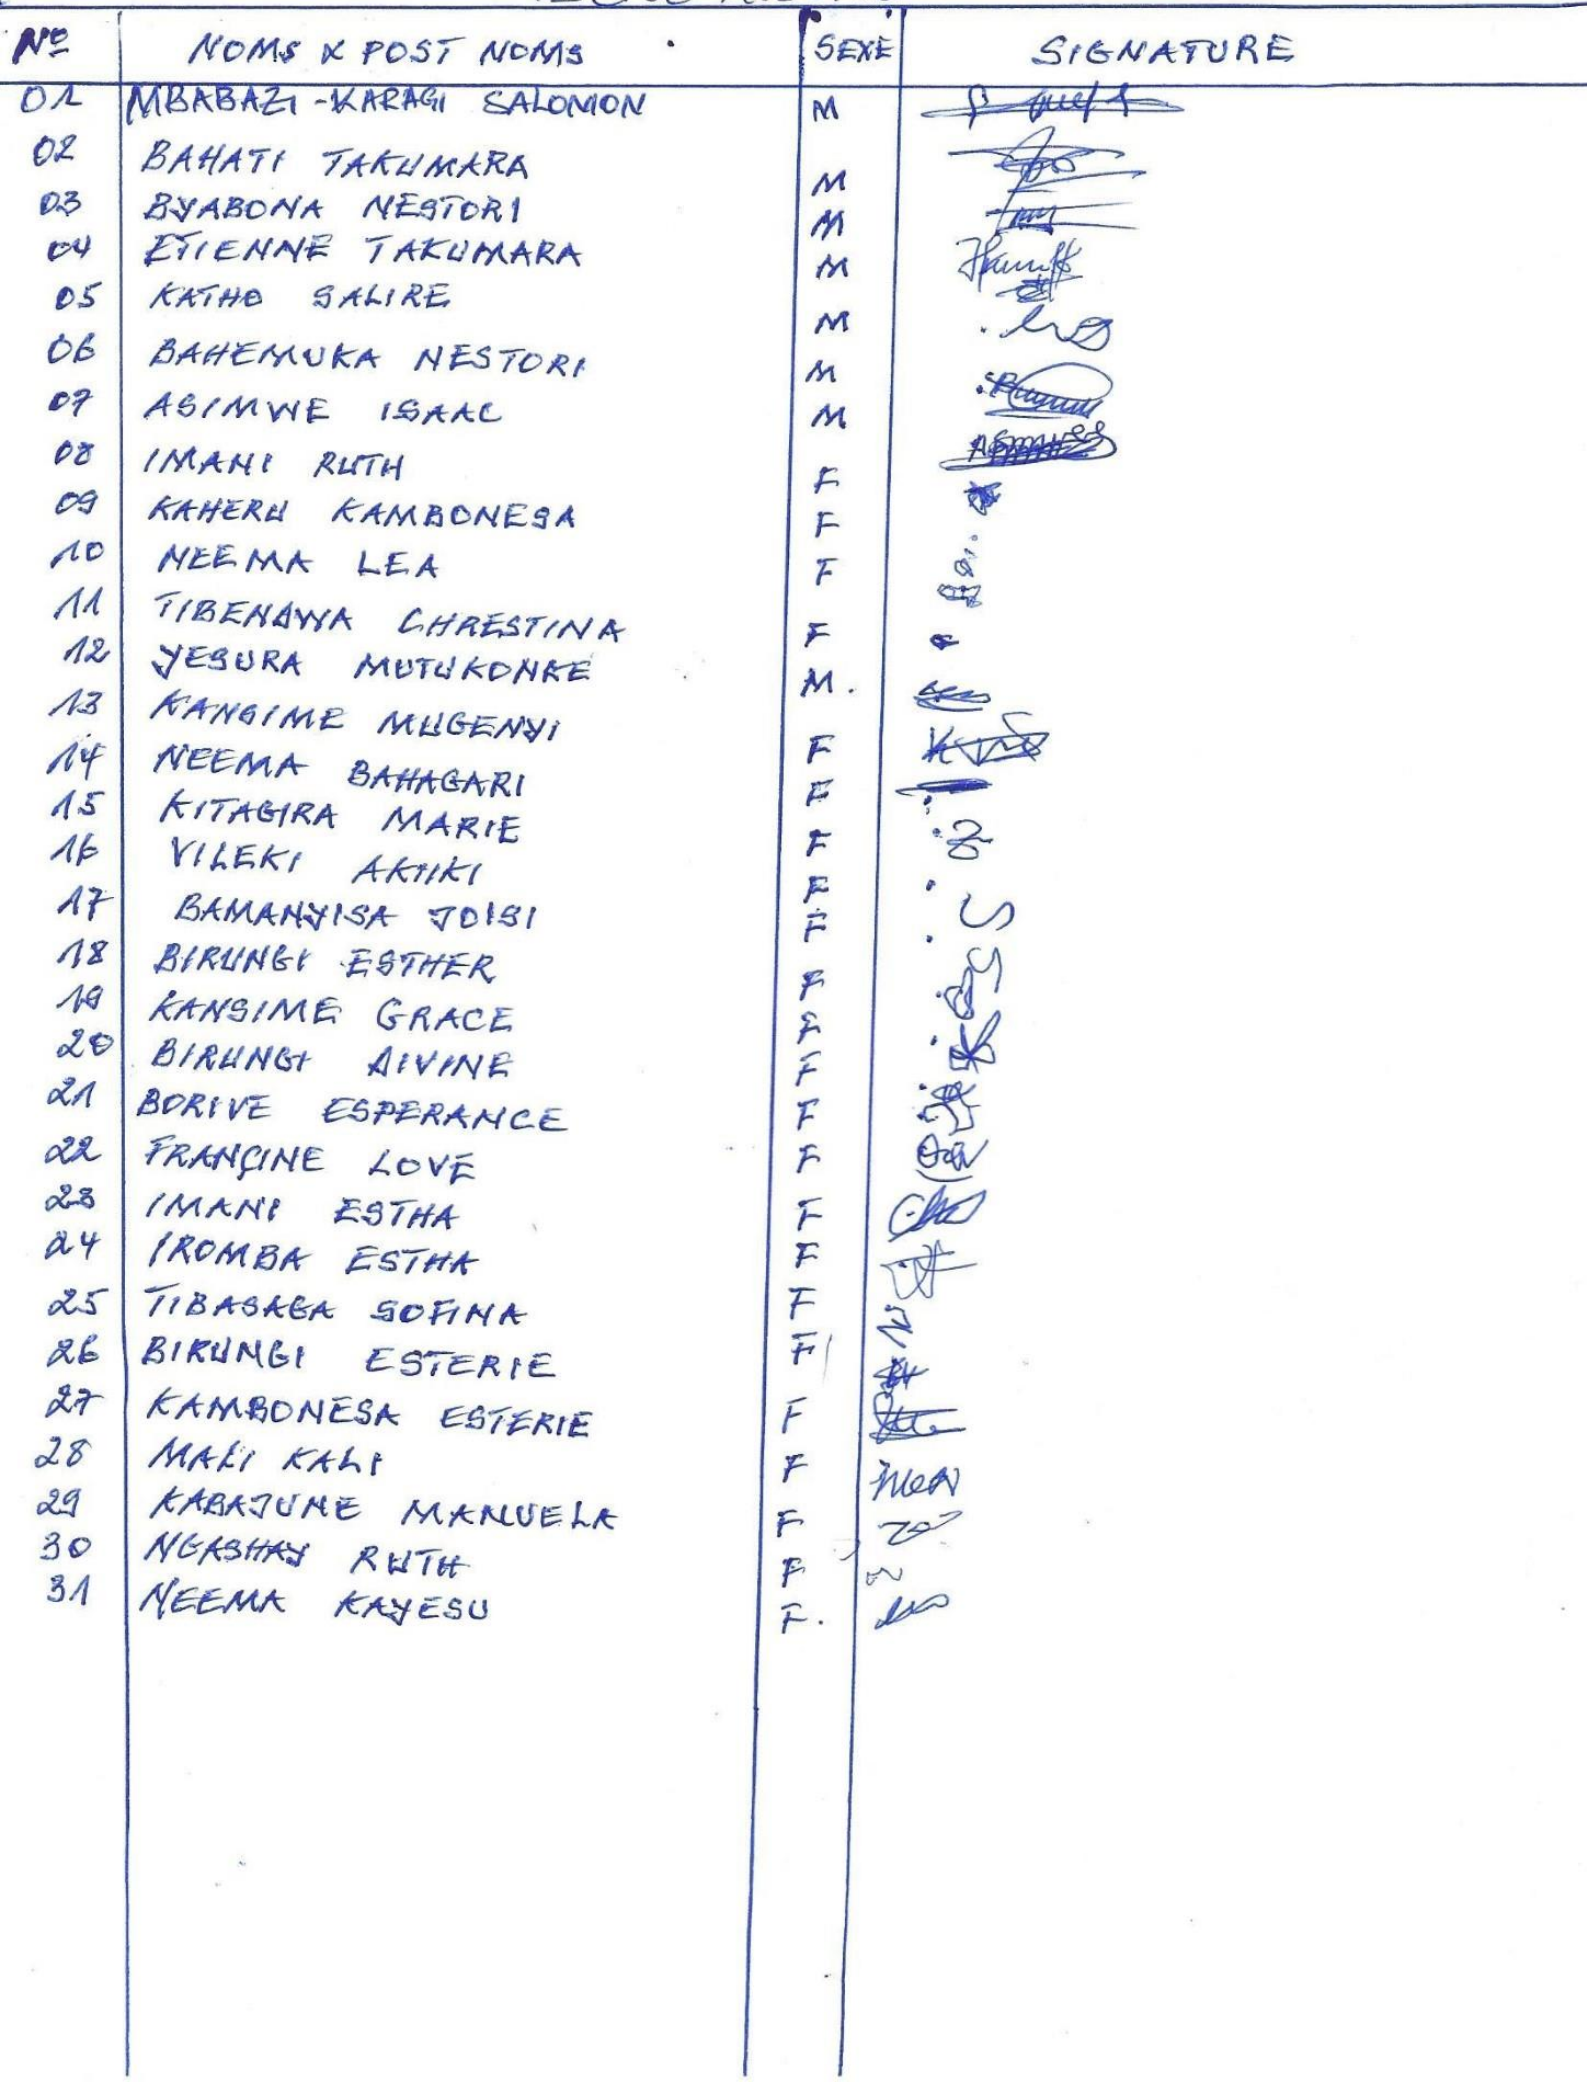 Nº NOMS & POST NOMS SEXE SIGNATURE
01 MBABAZI-KARAGI SALOMON M
02 BAHATI TAKUMARA M
03 BYABONA NESTORI M
04 ETIENNE TAKUMARA M
05 KATHO SALIRE M
06 BAHEMUKA NESTORI M
07 ASIMWE ISAAC M
08 IMANI RUTH F
09 KAHERU KAMBONESA F
10 NEEMA LEA F
11 TIBENAWA CHRESTINA F
12 YESURA MUTUKONKE M.
13 KANSIME MUGENYI F
14 NEEMA BAHAGARI F
15 KITAGIRA MARIE F
16 VILEKI AKIIKI F
17 BAMANYISA JOISI F
18 BIRUNGI ESTHER F
19 KANSIME GRACE F
20 BIRUNGI DIVINE F
21 BORIVE ESPERANCE F
22 FRANÇINE LOVE F
23 IMANI ESTHA F
24 IROMBA ESTHA F
25 TIBASAGA SOFINA F
26 BIRUNGI ESTERIE F
27 KAMBONESA ESTERIE F
28 MALI KALI F
29 KABAJUNE MANUELA F
30 NGASHAY RUTH F
31 NEEMA KAYESU F.